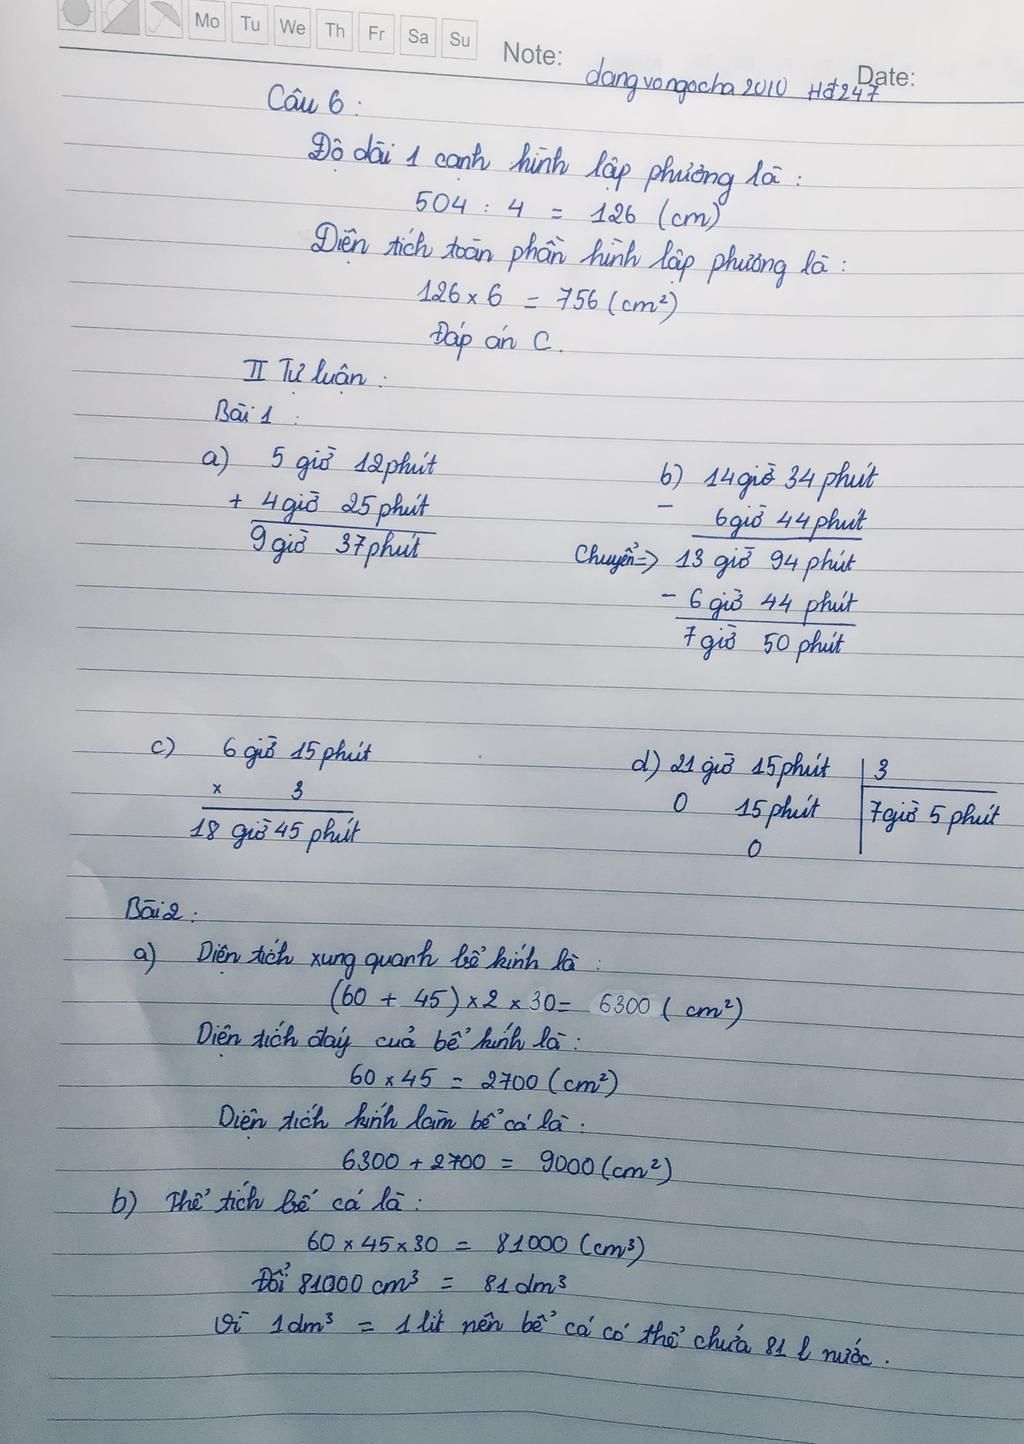 Mo Tu We Th Fr Sa Su
Note: Date:
dangvongocha2010 Hd247
Câu 6 :
Độ dài 1 cạnh hình lập phương là :
504 : 4 = 126 (cm)
Diện tích toàn phần hình lập phương là :
126 x 6 = 756 (cm²)
Đáp án C.
II Tự luận :
Bài 1 :
a) 5 giờ 12 phút
+ 4 giờ 25 phút
9 giờ 37 phút
b) 14 giờ 34 phút
- 6 giờ 44 phút
Chuyển => 13 giờ 94 phút
- 6 giờ 44 phút
7 giờ 50 phút
c) 6 giờ 15 phút
x 3
18 giờ 45 phút
d) 21 giờ 15 phút 3
0 15 phút 7 giờ 5 phút
0
Bài 2 :
a) Diện tích xung quanh bể kính là :
(60 + 45) x 2 x 30 = 6300 (cm²)
Diện tích đáy cuả bể kính là :
60 x 45 = 2700 (cm²)
Diện tích kính làm bể cá là :
6300 + 2700 = 9000 (cm²)
b) Thể tích bể cá là :
60 x 45 x 30 = 81000 (cm³)
Đổi 81000 cm³ = 81 dm³
Vì 1dm³ = 1 lít nên bể cá có thể chứa 81 l nước.